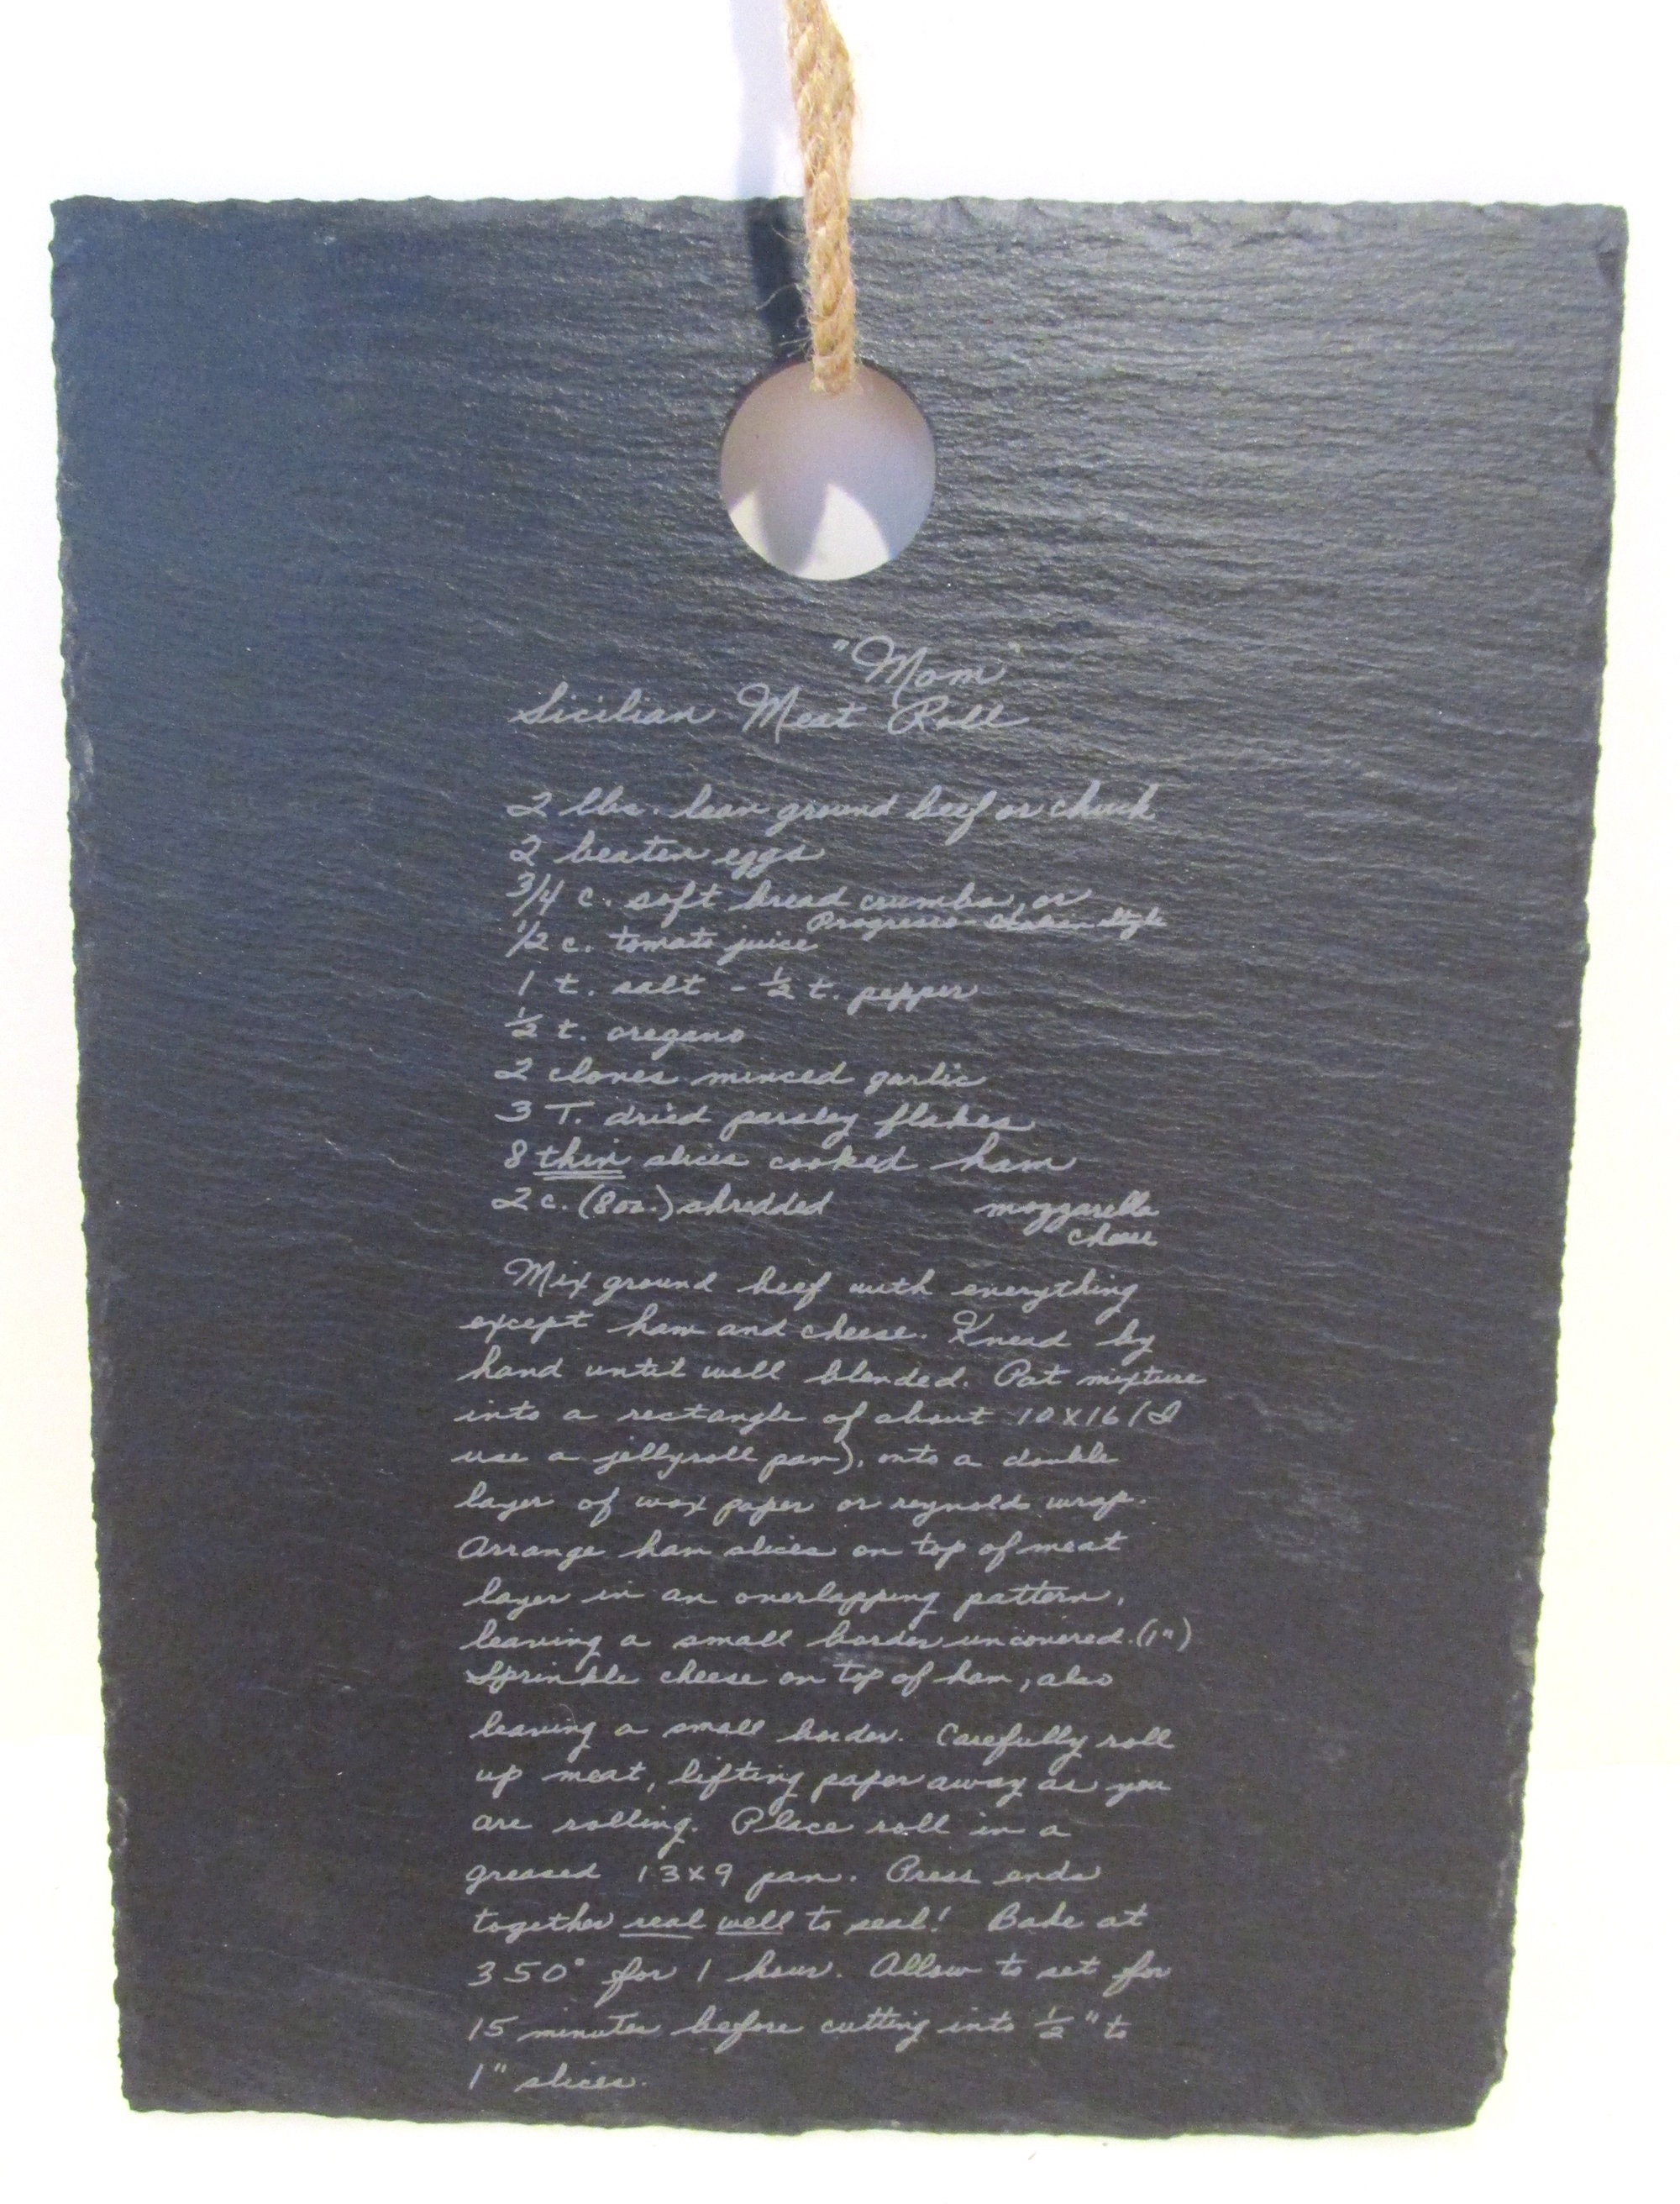 "Mom"
Sicilian Meat Roll
2 lbs. lean ground beef or chuck
2 beaten eggs
3/4 c. soft bread crumbs, or
Progresso Italian Style
1/2 c. tomato juice
1 t. salt - 1/2 t. pepper
1/2 t. oregano
2 cloves minced garlic
3 T. dried parsley flakes
8 thin slices cooked ham
2 c. (8oz.) shredded mozzarella
cheese
Mix ground beef with everything
except ham and cheese. Knead by
hand until well blended. Pat mixture
into a rectangle of about 10x16 (I
use a jellyroll pan), onto a double
layer of wax paper or reynolds wrap.
Arrange ham slices on top of meat
layer in an overlapping pattern,
leaving a small border uncovered. (1")
Sprinkle cheese on top of ham, also
leaving a small border. Carefully roll
up meat, lifting paper away as you
are rolling. Place roll in a
greased 13x9 pan. Press ends
together real well to seal! Bake at
350° for 1 hour. Allow to set for
15 minutes before cutting into 1/2" to
1" slices.